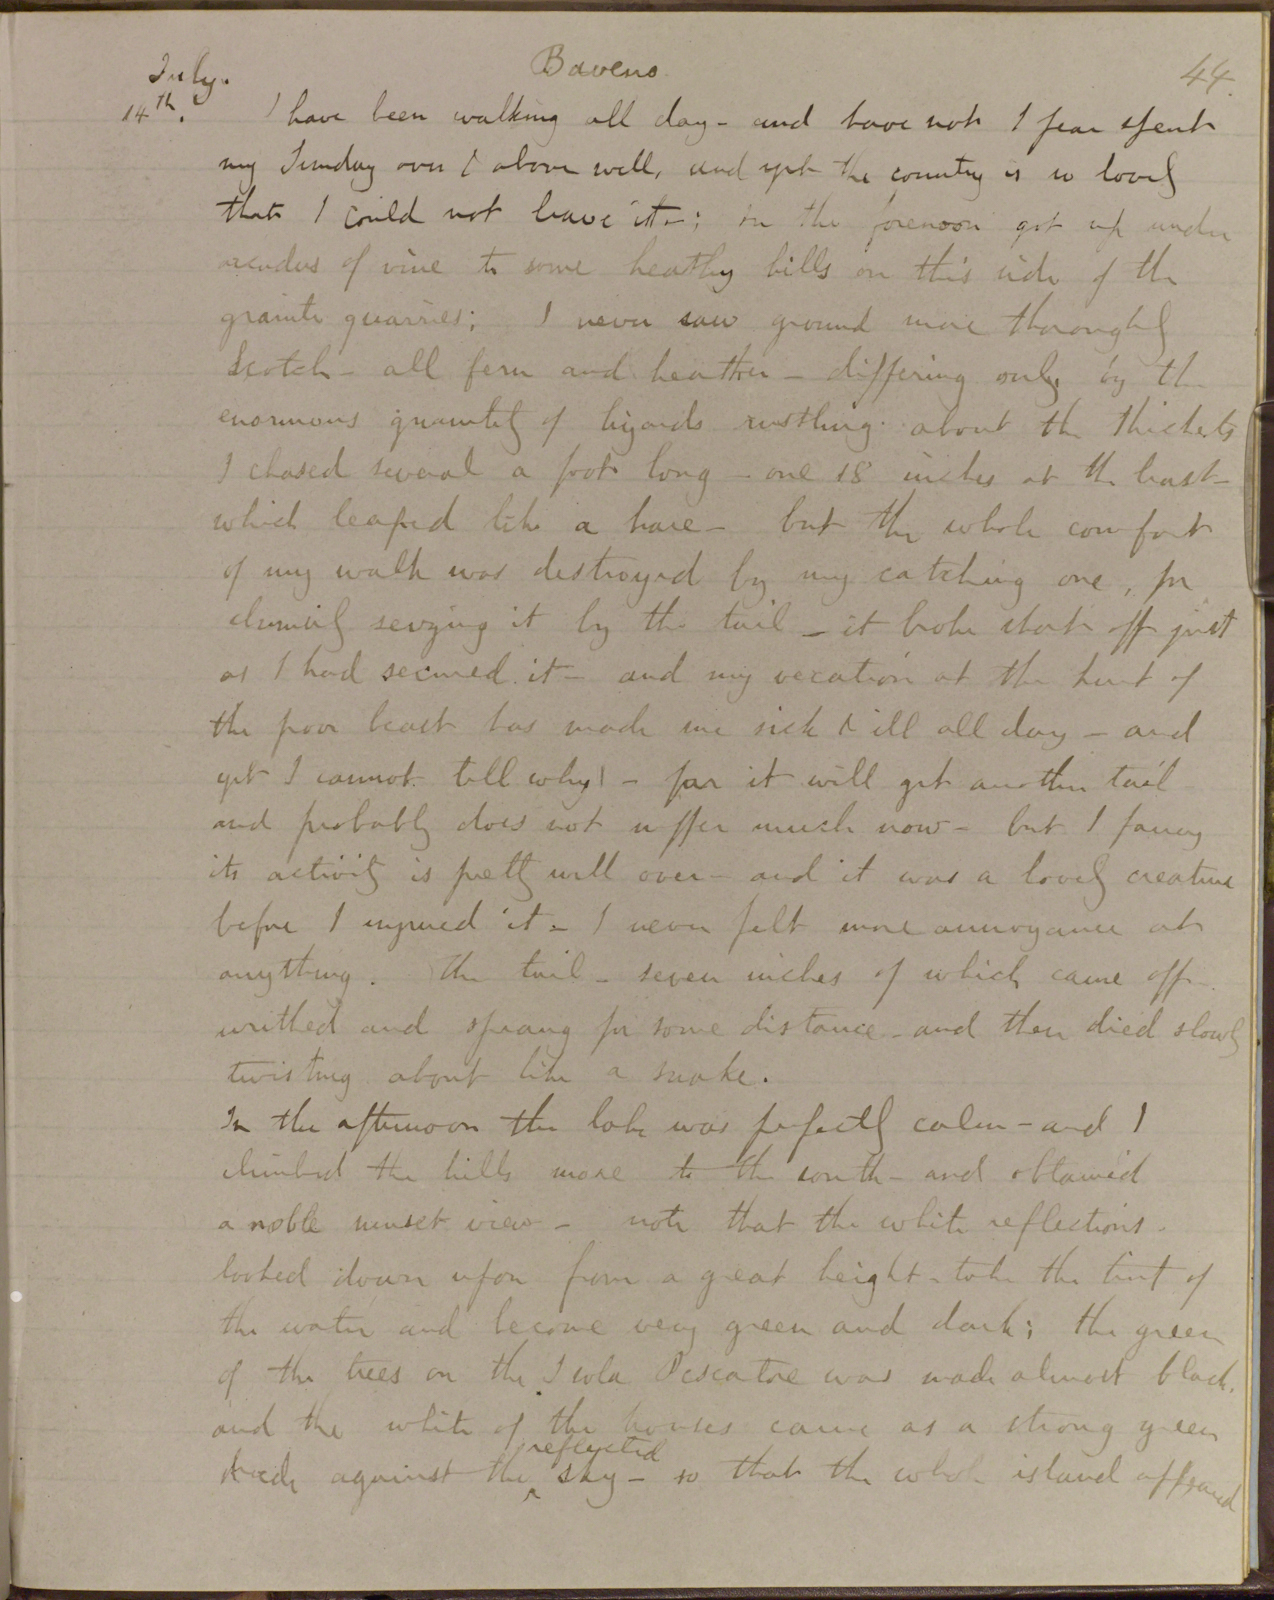 Baveno
44.
July.
14th. I have been walking all day - and have not I fear spent
my Sunday over & above well, and yet the country is so lovely
that I could not leave it -; in the forenoon got up under
arcades of vine to some heathy hills on this side of the
granite quarries; I never saw ground more thoroughly
Scotch - all fern and heather - differing only by the
enormous quantity of lizards rustling about the thickets
I chased several a foot long - one 18 inches at the least -
which leaped like a hare - but the whole comfort
of my walk was destroyed by my catching one, for
clumsily seizing it by the tail - it broke short off just
as I had secured it - and my vexation at the hurt of
the poor beast has made me sick & ill all day - and
yet I cannot tell why! - for it will get another tail
and probably does not suffer much now - but I fancy
its activity is pretty well over - and it was a lovely creature
before I injured it - I never felt more annoyance at
anything. The tail - seven inches of which came off -
writhed and sprang for some distance - and then died slowly
twisting about like a snake.
In the afternoon the lake was perfectly calm - and I
climbed the hills more to the south - and obtained
a noble sunset view - note that the white reflections -
looked down upon from a great height - take the tint of
the water and become very green and dark; the green
of the trees on the Isola Pescatore was made almost black,
and the white of the houses came as a strong green
shade against the ^ reflected sky - so that the whole island appeared